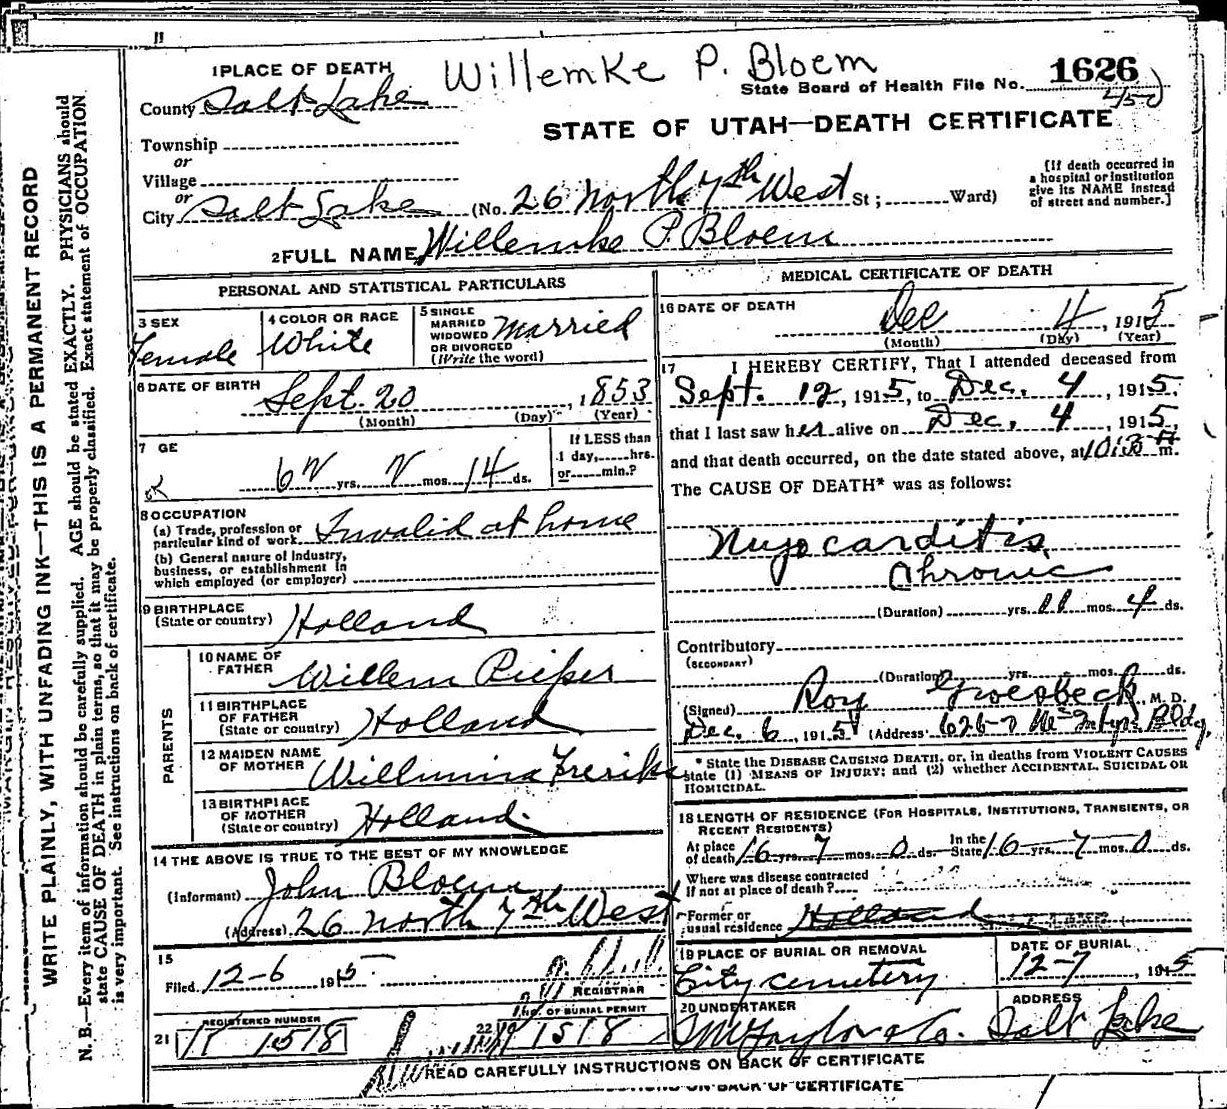 Willemke P. Bloem
1626
State Board of Health File No.
STATE OF UTAH—DEATH CERTIFICATE
1 PLACE OF DEATH
County Salt Lake
Township
or
Village
or
City Salt Lake (No. 26 North 7th West St; Ward)
[If death occurred in
a hospital or institution
give its NAME instead
of street and number.]
2 FULL NAME Willemke P. Bloem
PERSONAL AND STATISTICAL PARTICULARS
3 SEX
Female
4 COLOR OR RACE
White
5 SINGLE
MARRIED
WIDOWED
OR DIVORCED
(Write the word)
Married
6 DATE OF BIRTH
Sept. 20, 1853
(Month) (Day) (Year)
7 GE
62 yrs. 2 mos. 14 ds.
If LESS than
1 day, hrs.
or min.?
8 OCCUPATION
(a) Trade, profession or
particular kind of work Invalid at home
(b) General nature of Industry,
business, or establishment in
which employed (or employer)
9 BIRTHPLACE
(State or country) Holland
PARENTS
10 NAME OF
FATHER Willem
11 BIRTHPLACE
OF FATHER
(State or country) Holland
12 MAIDEN NAME
OF MOTHER Willmina Freriks
13 BIRTHPLACE
OF MOTHER
(State or country) Holland.
14 THE ABOVE IS TRUE TO THE BEST OF MY KNOWLEDGE
(Informant) John Bloem
(Address) 26 North 7th West
15
Filed 12-6 1915
REGISTRAR
REGISTERED NUMBER
21 1518
NO. OF BURIAL PERMIT
22 1518
MEDICAL CERTIFICATE OF DEATH
16 DATE OF DEATH
Dec 4, 1915
(Month) (Day) (Year)
17 I HEREBY CERTIFY, That I attended deceased from
Sept. 12, 1915, to Dec. 4, 1915,
that I last saw her alive on Dec. 4, 1915,
and that death occurred, on the date stated above, at 10:30 m.
The CAUSE OF DEATH* was as follows:
Myocarditis
Chronic
(Duration) yrs. 11 mos. 4 ds.
Contributory
(SECONDARY)
(Duration) yrs. mos. ds.
(Signed) Roy Groesbeck, M. D.
Dec. 6, 1915 (Address) 626-7 McIntyre Bldg.
* State the DISEASE CAUSING DEATH, or, in deaths from VIOLENT CAUSES
state (1) MEANS OF INJURY; and (2) whether ACCIDENTAL, SUICIDAL OR
HOMICIDAL.
18 LENGTH OF RESIDENCE (FOR HOSPITALS, INSTITUTIONS, TRANSIENTS, OR
RECENT RESIDENTS)
At place
of death 16 yrs. 7 mos. 0 ds. In the
State 16 yrs. 7 mos. 0 ds.
Where was disease contracted
if not at place of death?
Former or
usual residence Holland
19 PLACE OF BURIAL OR REMOVAL
City cemetery
DATE OF BURIAL
12-7, 1915
20 UNDERTAKER
S. M. Taylor & Co.
ADDRESS
Salt Lake
READ CAREFULLY INSTRUCTIONS ON BACK OF CERTIFICATE
ON BACK OF CERTIFICATE
WRITE PLAINLY, WITH UNFADING INK—THIS IS A PERMANENT RECORD
N. B.—Every item of information should be carefully supplied. AGE should be stated EXACTLY. PHYSICIANS should
state CAUSE OF DEATH in plain terms, so that it may be properly classified. Exact statement of OCCUPATION
is very important. See instructions on back of certificate.